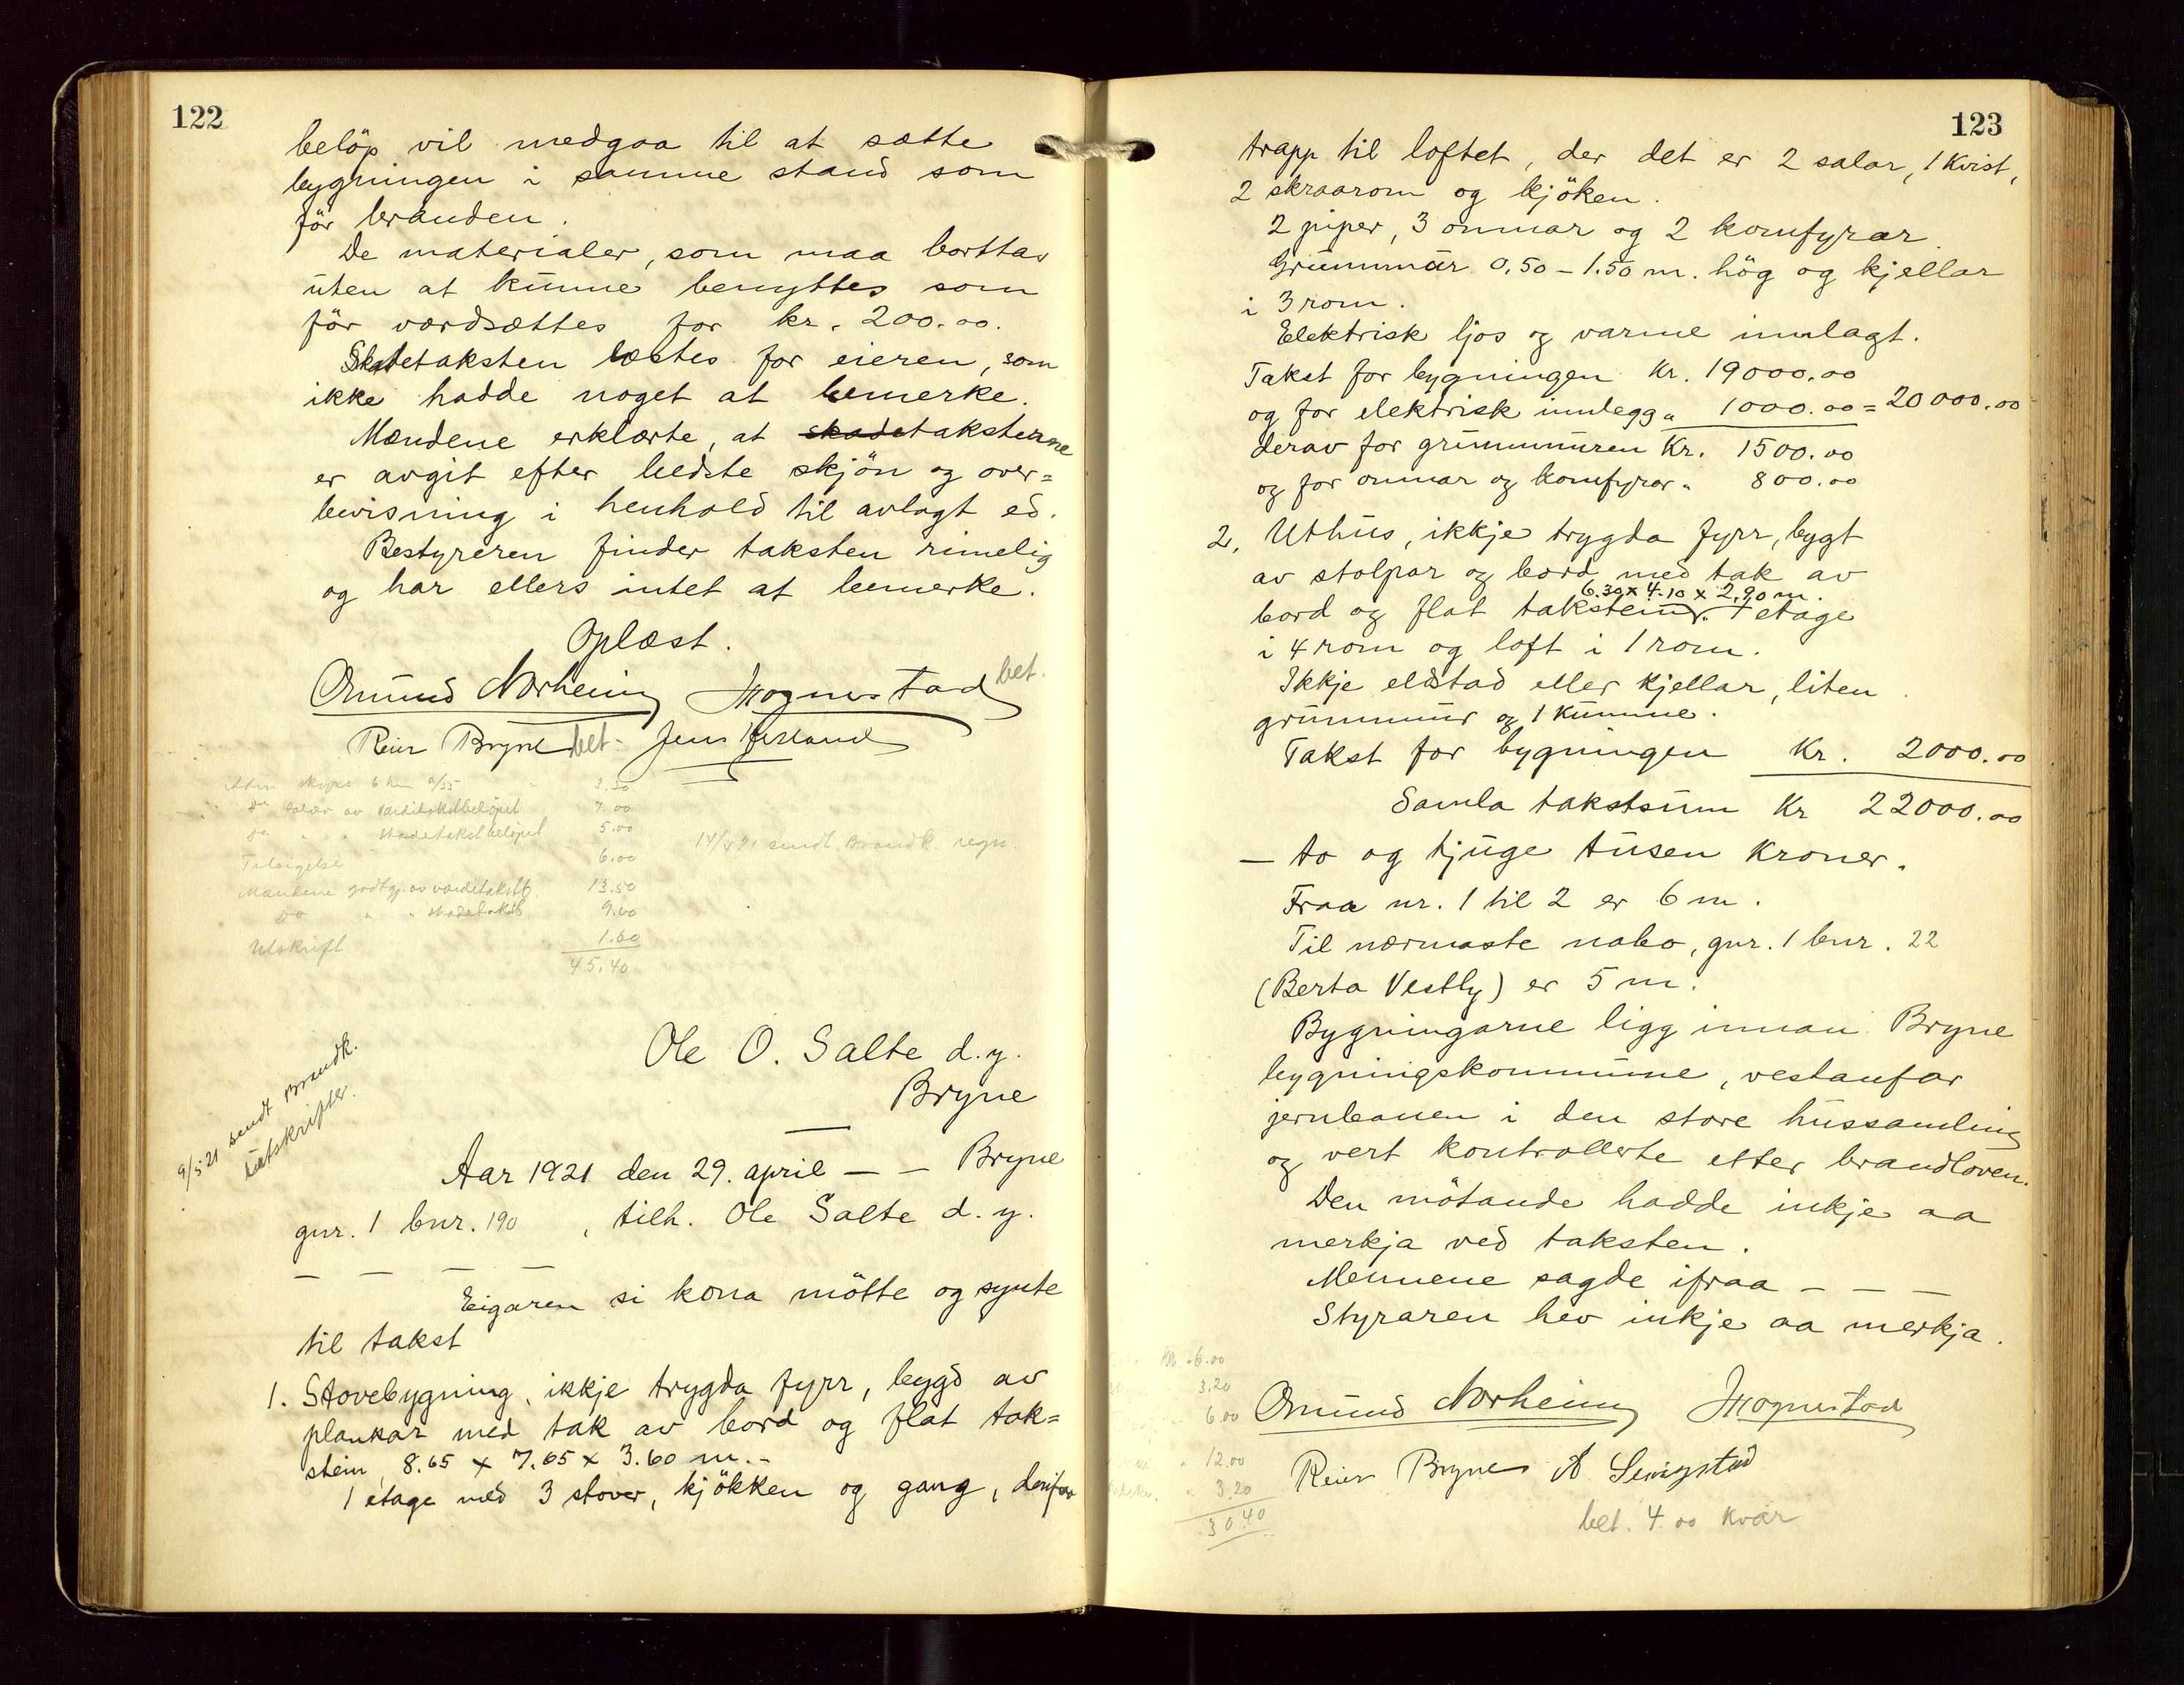 122
belöp vil medgaa til at sætte
bygningen i samme stand som
för branden.
De materialer, som maa borttas
uten at kunne benyttes som
för værdsættes for kr. 200.00.
Skadetaksten læstes for eieren, som
ikke hadde noget at bemerke.
Mændene erklærte, at skadetaksterne
er avgit efter bedste skjön og over=
bevisning i henhold til avlagt ed.
Bestyreren finder taksten rimelig
og har ellers intet at bemerke.
Oplæst.
Omund Norheim Hognestad bet.
Reier Bryne bet. Jens
skyss 6 km 3.30
Do salær av værditakstbelöpet 7.00
Do " " skadetakstbeløpet 5.00
14/4 21 sendt Brandk. regn.
Tilsigelse 6.00
Mændene godtgj. av værditakstb. 13.50
Do " " skadetakstb 9.00
Utskrift 1.60
45.40
Ole O. Salte d.y.
Bryne
9/5 21 sendt Brandk.
utskrifter.
Aar 1921 den 29. april — — Bryne
gnr. 1 bnr. 190 , tilh. Ole Salte d. y.
— — — —
Eigaren si kona mötte og synte
til takst
1. Stovebygning, ikkje trygda fyrr, bygd av
plankar med tak av bord og flat tak=
stein, 8.65 x 7.65 x 3.60 m. -
1 etage med 3 stover, kjökken og gang, derifra
123
trapp til loftet, der det er 2 salar, 1 kvist,
2 skraarom og kjöken.
2 piper, 3 omnar og 2 komfyrar.
Grunnmur 0.50 - 1.50 m. hög og kjellar
i 3 rom.
Elektrisk ljos og varme innlagt.
Takst for bygningen Kr. 19000.00
og for elektrisk innlegg " 1000.00 = 20000.00
derav for grunnmuren Kr. 1500.00
og for omnar og komfyrar " 800.00
2. Uthus, ikkje trygda fyrr, bygt
av stolpar og bord med tak av
6.30 x 4.10 x 2.90 m.
bord og flat takstein. 1 etage
i 4 rom og loft i 1 rom.
Ikkje eldstad eller kjellar, liten
grunnmur og 1 kumme.
Takst for bygningen Kr. 2000.00
Samla takstsum Kr 22000.00
— to og tjuge tusen kroner.
Fraa nr. 1 til 2 er 6 m.
Til nærmaste nabo, gnr. 1 bnr. 22
(Berta Vestly) er 5 m.
Bygningarne ligg innan Bryne
bygningskommune, vestanfor
jernbanen i den store hussamling
og vert kontrollerte etter brandloven.
Den mötande hadde inkje aa
merkja ved taksten.
Mennene sagde ifraa - — —
Styraren hev inkje aa merkja.
6.00
3.20
6.00
12.00
3.20
30.40
Omund Norheim Hognestad
Reier Bryne A Serigstad
bet. 4.00 kvar